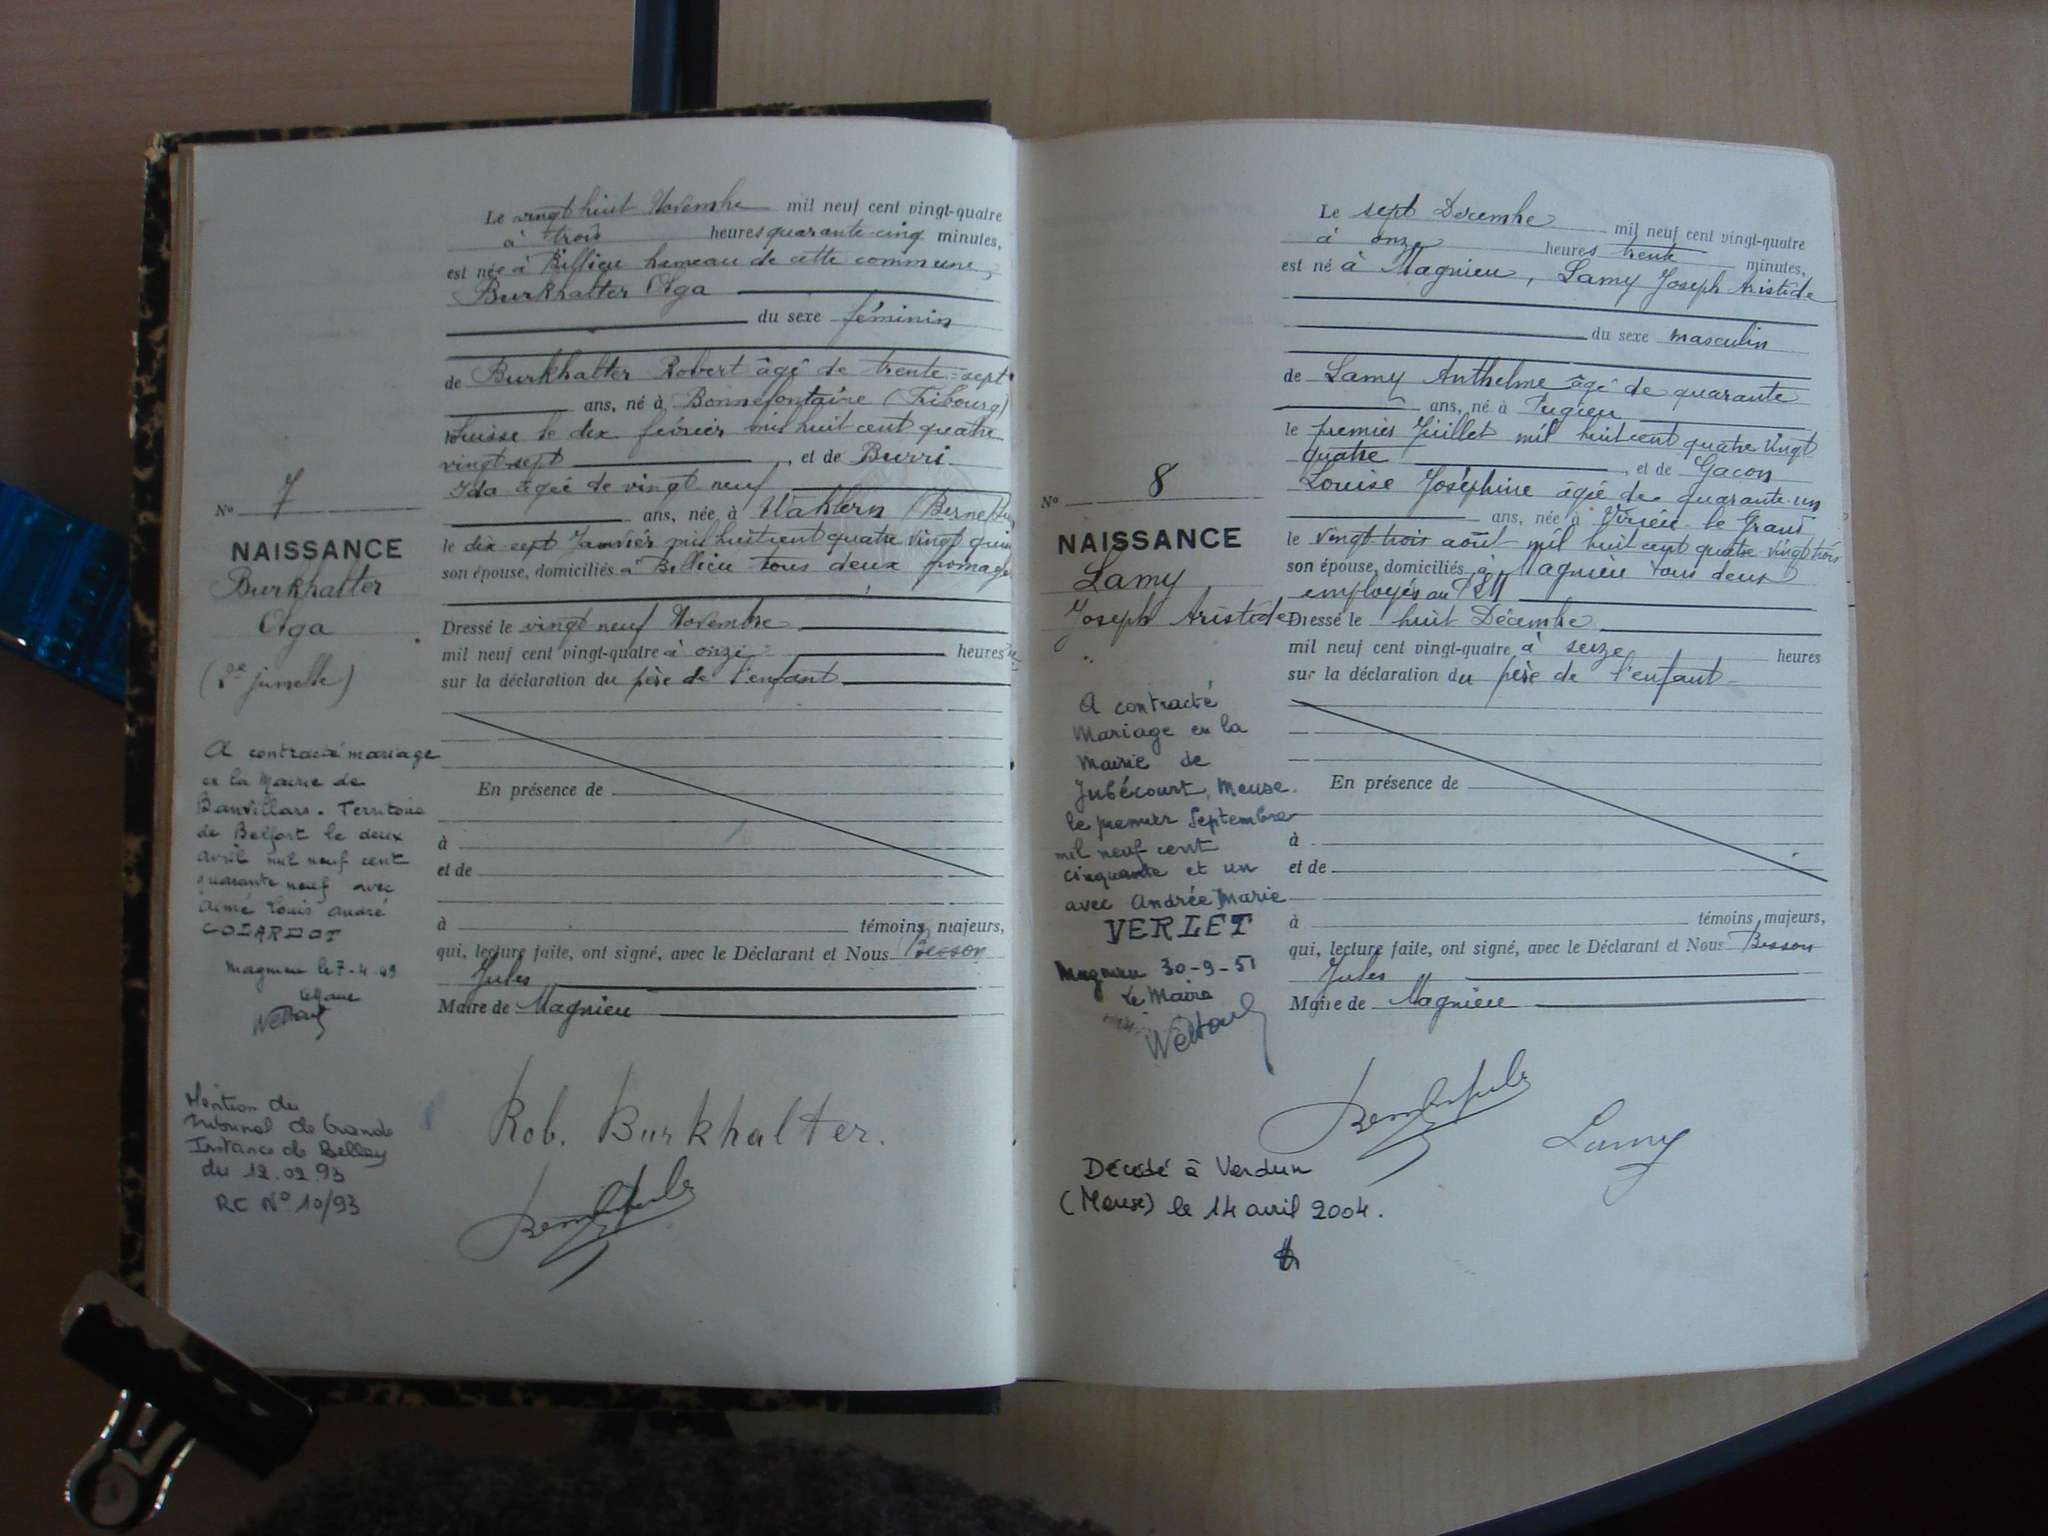 Le vingt huit Novembre mil neuf cent vingt-quatre
à trois heures quarante-cinq minutes,
est née à Billieu hameau de cette commune,
Burkhalter Olga
du sexe féminin
de Burkhalter Robert âgé de trente-sept
ans, né à Bonnefontaine (Fribourg)
Suisse le dix février mil huit cent quatre
vingt-sept, et de Burri
Ida âgée de vingt neuf
ans, née à Wahlern (Berne
le dix sept Janvier mil huit cent quatre vingt quin
son épouse, domiciliés à Billieu tous deux fromage
Dressé le vingt neuf Novembre
mil neuf cent vingt-quatre à onze heures
sur la déclaration du père de l'enfant
En présence de
à
et de
à témoins majeurs,
qui, lecture faite, ont signé, avec le Déclarant et Nous Besson
Jules
Maire de Magnieu
Rob. Burkhalter.
No 7
NAISSANCE
Burkhalter
Olga
(2de jumelle)
A contracté mariage
en la Mairie de
Banvillars - Territoire
de Belfort le deux
avril mil neuf cent
quarante neuf avec
Aimé Louis André
COLARDOT
Magnieu le 7-4-49
Le Maire
Mention du
Tribunal de Grande
Instance de Belley
du 12.02.93
RC N° 10/93
Le sept Decembre mil neuf cent vingt-quatre
à onze heures trente minutes,
est né à Magnieu, Lamy Joseph Aristide
du sexe masculin
de Lamy Anthelme âgé de quarante
ans, né à Pugieu
le premier Juillet mil huit cent quatre vingt
quatre, et de Gacon
Louise Joséphine âgée de quarante-un
ans, née à Virieu le Grand
le vingt-trois août mil huit cent quatre-vingt trois
son épouse, domiciliés à Magnieu tous deux
employés au
Dressé le huit Décembre
mil neuf cent vingt-quatre à seize heures
sur la déclaration du père de l'enfant
En présence de
à
et de
à témoins majeurs,
qui, lecture faite, ont signé, avec le Déclarant et Nous Besson
Jules
Maire de Magnieu
Lamy
No 8
NAISSANCE
Lamy
Joseph Aristide
A contracté
Mariage en la
Mairie de
Jubécourt, Meuse.
le premier Septembre
mil neuf cent
cinquante et un
avec Andrée Marie
VERLET
Magnieu 30-9-51
Le Maire
Décédé à Verdun
(Meuse) le 14 avril 2004.